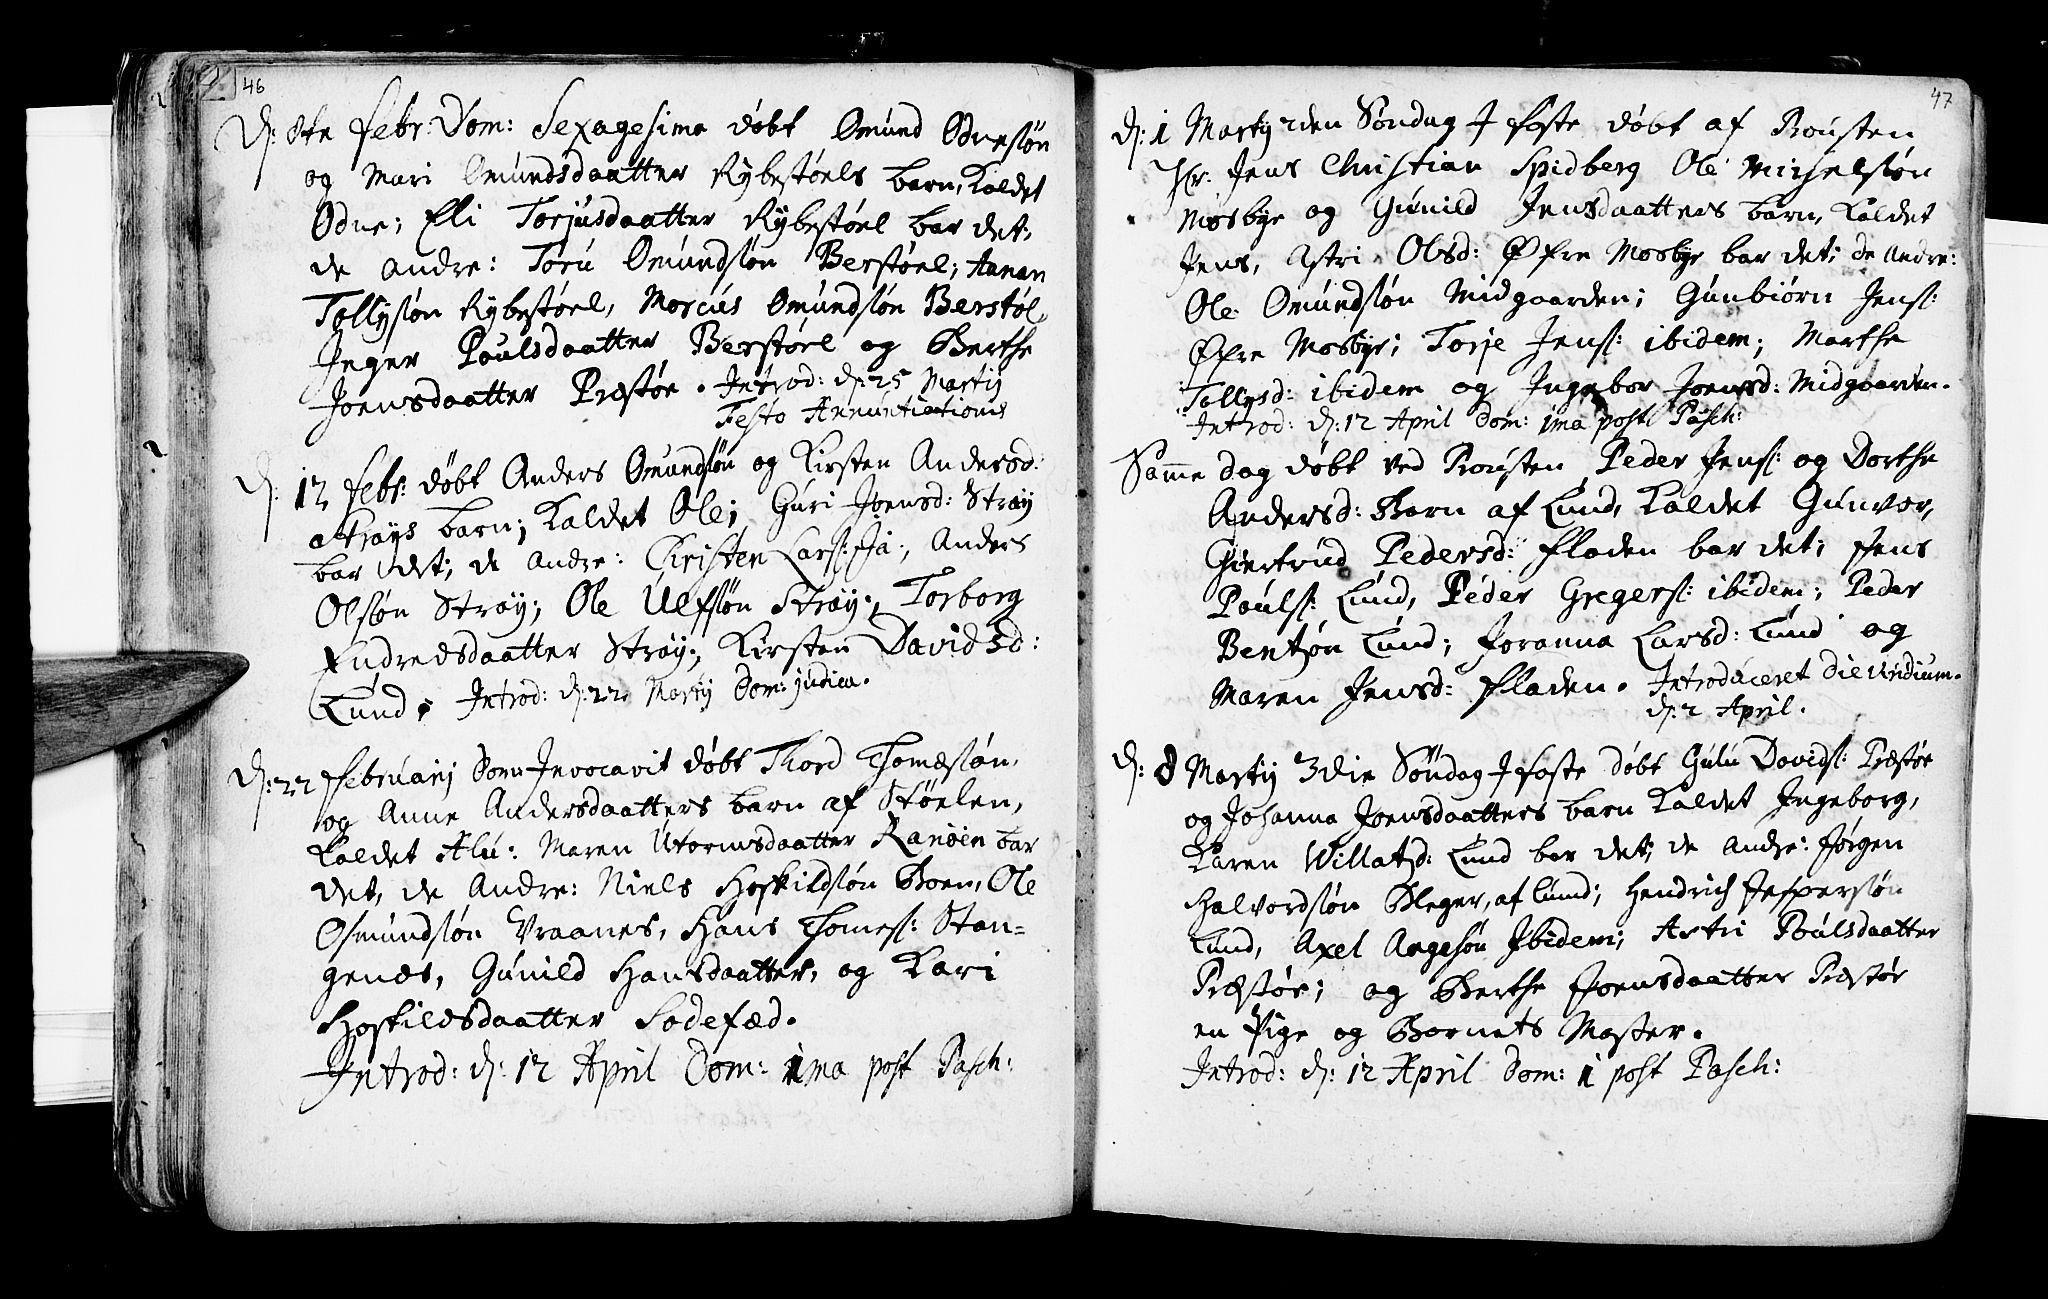 46
D: 8te Febr: Dom: Sexagesima døbt Omund Odnesøn
og Mari Omundsdaatter Rybestøels barn, kaldet
Odne; Eli Torjusdaatter Rybestøel bar det;
de andre: Toru Omundsøn Berstøel; Aanen
Tollysøn Rybestøel, Marcus Omundsøn Berstøl,
Inger Poulsdaatter Berstøel og Berthe
Joensdaatter Præstøe. Introd: d: 25 Martij
Festo Annuntiationis
D: 12 Febr: døbt Anders Omundsøn og Kirsten Andersd:
Strøys barn; kaldet Ole; Guri Joensd: Strøy
bar det; de andre: Christen Lars:, Anders
Olsøn Strøy; Ole Ulfsøn Strøy; Torborg
Endresdaatter Strøy; Kirsten Davidsd:
Lund. Introd: d: 22 Martij Dom: judica.
D: 22 Februarij Dom: Invocavit døbt Thord Thomæsøn,
og Anne Andersdaatters barn af Støelen,
kaldet Alu: Maren Utormsdaatter Ranøen bar
det, de Andre: Niels Hoskildsøn Boen, Ole
Osmundsøn Vraanes, Hans Thomess: Stan=
genæs, Gunild Hansdaatter, og Kari
Hoskildsdaatter Sodefæd.
Introd: d: 12 April Dom: 1ma post Pasch:
47
D: 1 Martij 2den Søndag J Faste døbt af Prousten
Hr. Jens Christian Spidberg Ole Michelsøn
Mosbye og Gunild Jensdaatters barn, kaldet
Jens, Astri Olsd: Øfre Mosbye bar det; de Andre:
Ole Omundsøn Midgaarden; Gunbiørn Jens:
Øfre Mosbye; Torje Jens: ibidem; Marthe
Tollefsd: ibidem og Ingebor Joensd: Midgaarden.
Introd: d: 12 April Dom: 1ma post Pasch:
Samme dag døbt ved Prousten Peder Jens: og Dorthe
Andersd: Barn af Lund, kaldet Gunvor,
Giertrud Pedersd: Fladen bar det; Jens
Pouls: Lund, Peder Gregers: ibidem; Peder
Bentsøn Lund; Joranna Larsd: Lund og
Maren Jensd: Fladen. Introduceret die viridium.
d: 2 April.
D: 8 Martij 3die Søndag J Faste døbt Gulu Davids: Præstøe
og Johanna Joensdaatters barn kaldet Ingeborg,
Karen Willatsd: Lund bar det; de andre: Jørgen
Halvordsøn Bleger, af Lund; Hendrich Jespersøn
Lund, Axel Aagesøn Ibidem; Astri Poulsdaatter
Præstøe; og Berthe Joensdaatter Præstøe
en Pige og Barnets Moster.
Introd: d: 12 April Dom: 1 post Pasch: